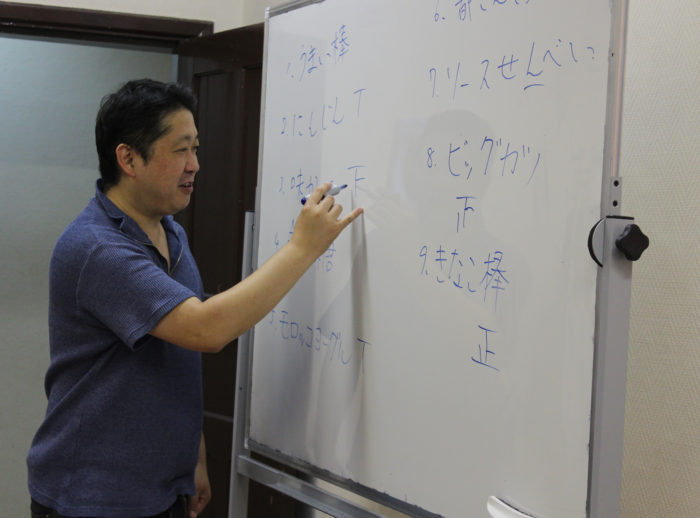 1. うまい棒
2. にんじん T
3. 味 正
4.
5. モロッコヨーグル T
6.
7. ソースせんべい
8. ビッグカツ
正
9. きなこ棒
正